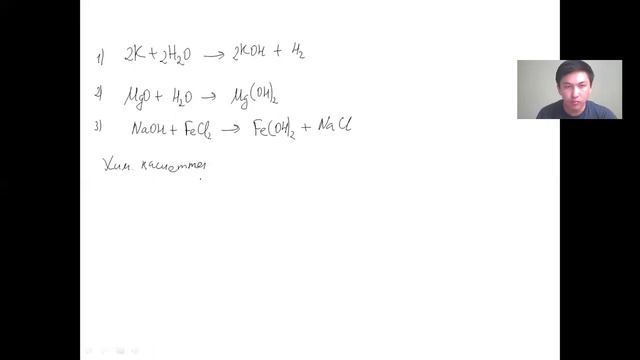 1) 2K + 2H₂O → 2KOH + H₂
2) MgO + H₂O → Mg(OH)₂
3) NaOH + FeCl₂ → Fe(OH)₂ + NaCl
Хим. касиеттер